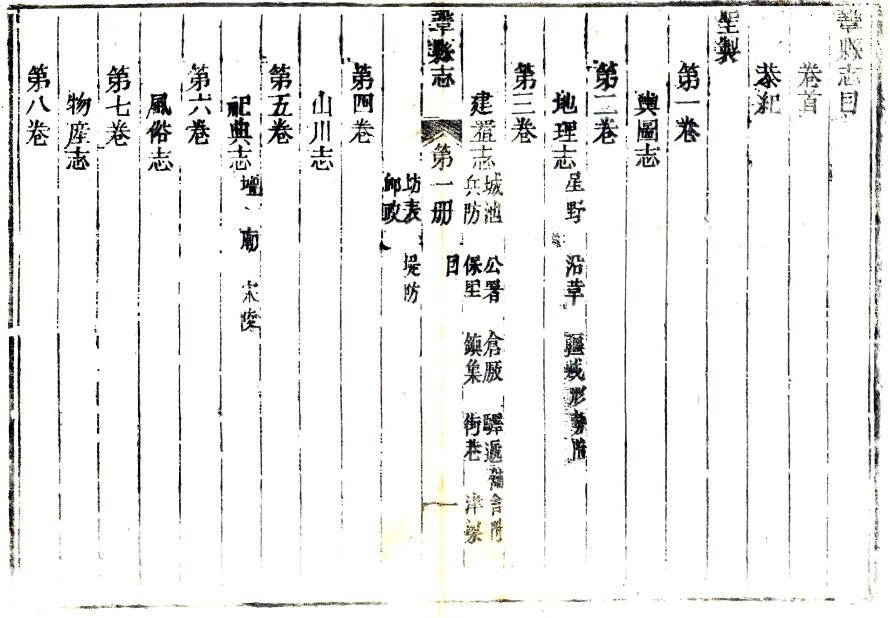 鞏縣志目
卷首
恭紀
聖製
第一卷
輿圖志
第二卷
地理志 星野 沿革 疆域形勢附
第三卷
建置志 城池 公署 倉廒 驛遞舖舍附
兵防 保里 鎮集 街巷 津梁
鞏縣志 第一册 目 一
坊表 堤防
郵政
第四卷
山川志
第五卷
祀典志 壇 廟 宋陵
第六卷
風俗志
第七卷
物產志
第八卷